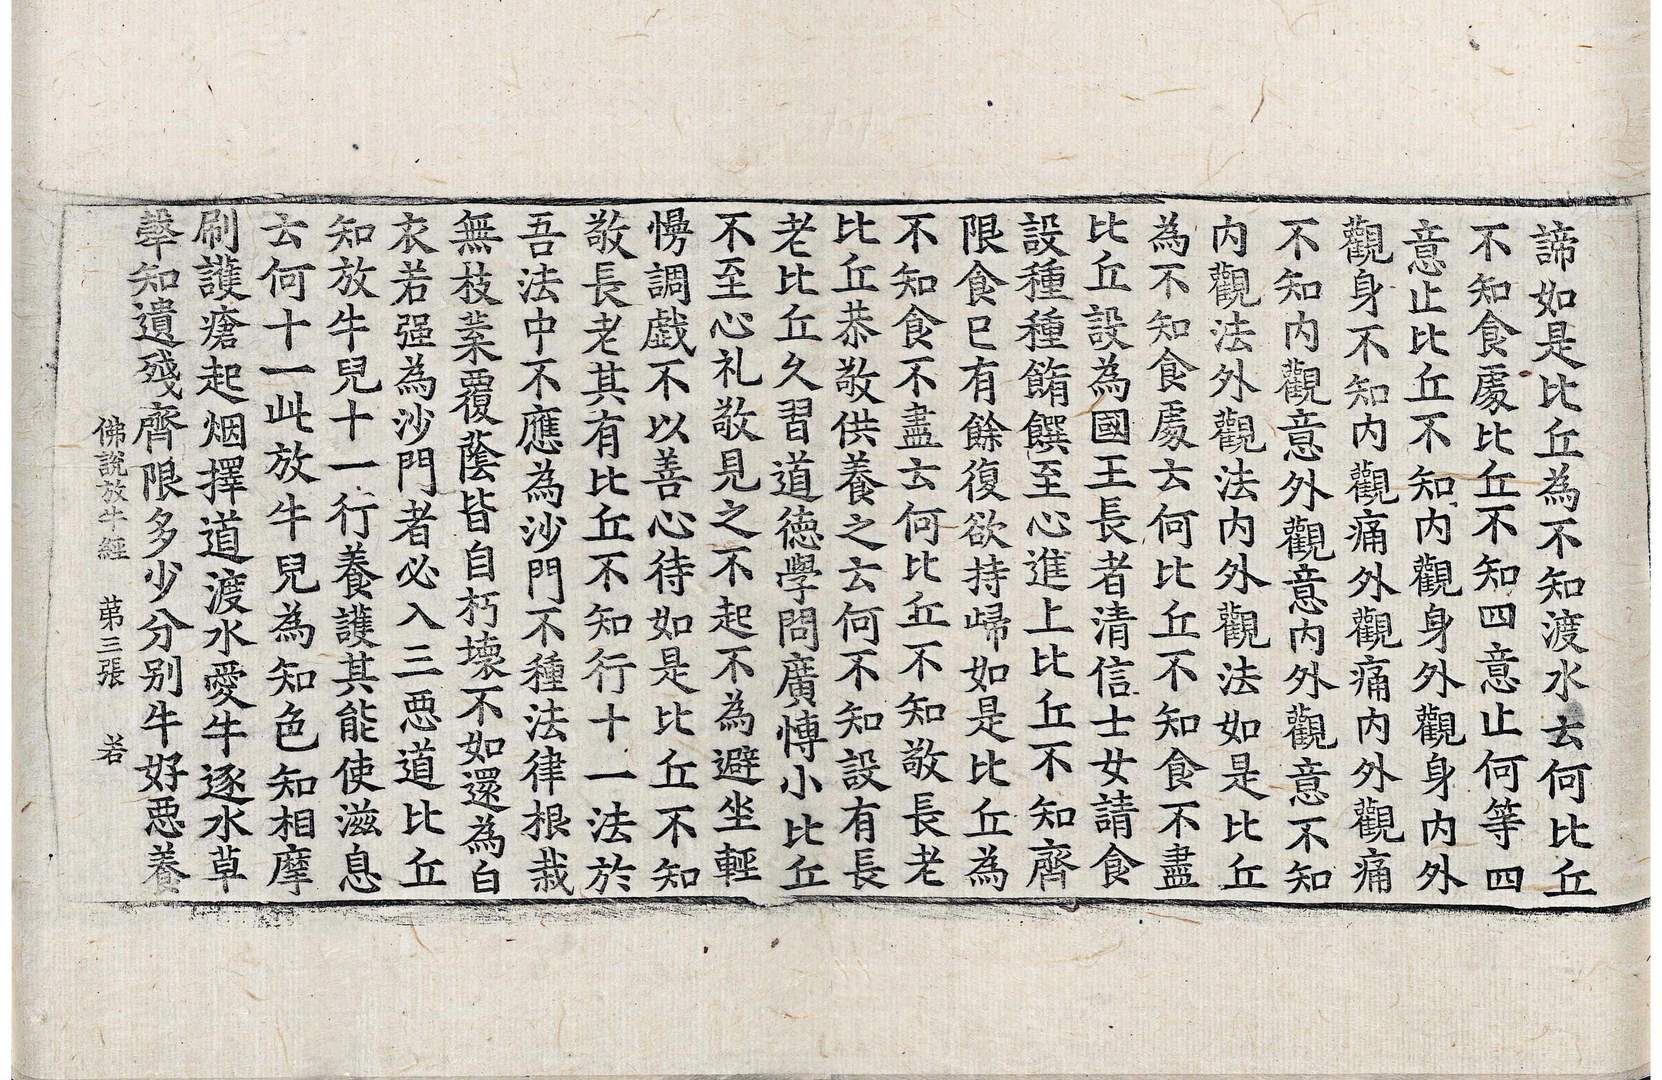 諦如是比丘為不知渡水云何比丘
不知食處比丘不知四意止何等四
意止比丘不知內觀身外觀身內外
觀身不知內觀痛外觀痛內外觀痛
不知內觀意外觀意內外觀意不知
內觀法外觀法內外觀法如是比丘
為不知食處云何比丘不知食不盡
比丘設為國王長者清信士女請食
設種種餚饌至心進上比丘不知齊
限食已有餘復欲持歸如是比丘為
不知食不盡云何比丘不知敬長老
比丘恭敬供養之云何不知設有長
老比丘久習道德學問廣愽小比丘
不至心礼敬見之不起不為避坐輕
慢調戲不以善心待如是比丘不知
敬長老其有比丘不知行十一法於
吾法中不應為沙門不種法律根栽
無枝葉覆蔭皆自朽壞不如還為白
衣若强為沙門者必入三惡道比丘
知放牛兒十一行養護其能使滋息
云何十一此放牛兒為知色知相摩
刷護瘡起烟擇道渡水愛牛逐水草
𤛗知遺殘齊限多少分別牛好惡養
佛說放牛經 苐三張 若